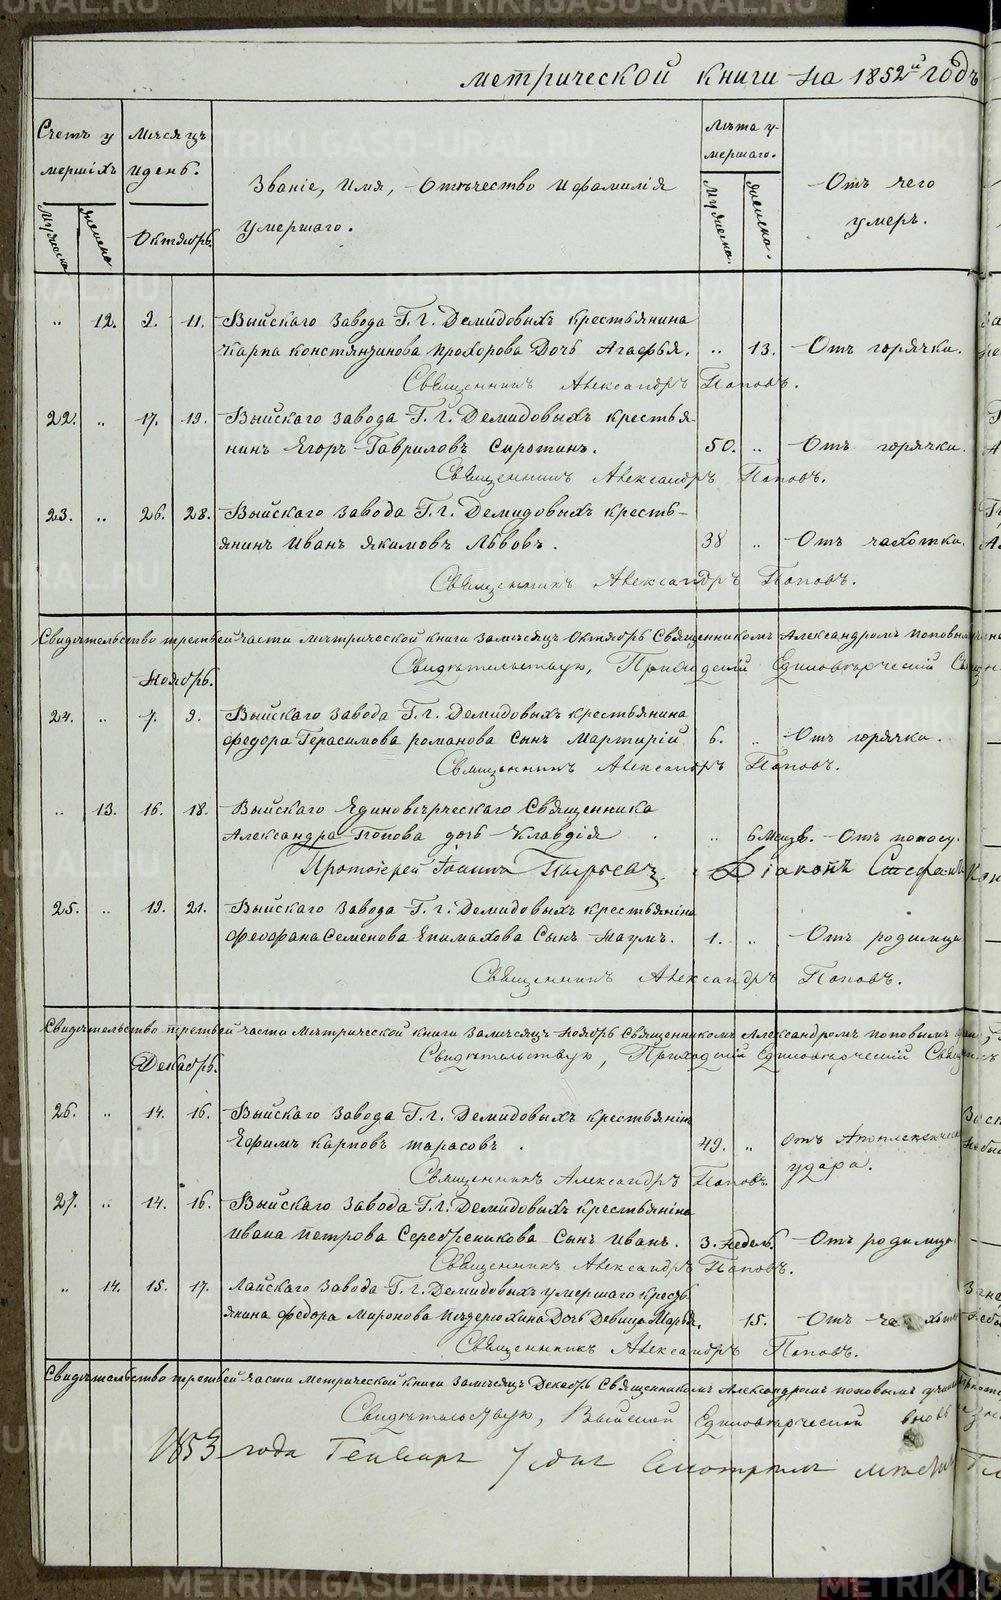 метрической книги на 1852й годъ
Счетъ у
мершихъ
Мужеска
Женска
Мѣсяцъ
и день.
Октябрь.
Званіе, Имя, Отъчество и фамилія
умершаго.
Лѣта у-
мершаго.
Мужеска.
Женска.
Отъ чего
умеръ.
" 12. 9. 11. Выйскаго завода Г. г. Демидовыхъ крестьянина
Карпа Констянтинова Прохорова Дочь Агафья. " 13. Отъ горячки.
Священникъ Александръ Поповъ.
22. " 17. 19. Выйскаго завода Г. г. Демидовыхъ крестья-
нинъ Егоръ Гавриловъ Сиротинъ. 50. " Отъ горячки.
Священникъ Александръ Поповъ.
23. " 26. 28. Выйскаго завода Г. г. Демидовыхъ кресть-
янинъ Иванъ Якимовъ Львовъ. 38 " Отъ чахотки.
Священникъ Александръ Поповъ.
Свидѣтельство третьей части метрической книги замѣсяцъ Октябрь Священникомъ Александромъ Поповымъ
Свидѣтельствую, Приходскій Единовѣрческій
Ноябрь.
24. " 7. 9. Выйскаго завода Г. г. Демидовыхъ крестьянина
Федора Герасимова Романова Сынъ Мартирій 6. " Отъ горячки.
Священникъ Александръ Поповъ.
" 13. 16. 18. Выйскаго Единовѣрческаго Священника
Александра Попова дочь Клавдія. " 6 Мѣсяцв. Отъ поносу.
Протоіерей Іоаннъ Діаконъ Стефанъ
25. " 19. 21. Выйскаго завода Г. г. Демидовыхъ крестьянина
Феофана Семенова Епимахова Сынъ Наумъ. 1. " Отъ родимца
Священникъ Александръ Поповъ.
Свидѣтельство третьей части Метрической книги замѣсяцъ Ноябрь Священникомъ Александромъ Поповымъ
Свидѣтельствую, Приходскій Единовѣрческій
Декабрь.
26. " 14. 16. Выйскаго завода Г. г. Демидовыхъ крестьянинъ
Ефимъ Карповъ Тарасовъ. 49. " отъ Апоплексическ
удара.
Священникъ Александръ Поповъ
27. " 14. 16. Выйскаго завода Г. г. Демидовыхъ крестьянина
Ивана Петрова Серебреникова Сынъ Иванъ. 3. недель. Отъ родимца
Священникъ Александръ Поповъ.
" 14. 15. 17. Лайскаго завода Г. г. Демидовыхъ умершаго кресть
янина Федора Миронова Дочь Девица Марья. 15. Отъ
Священникъ Александръ Поповъ.
Свидѣтельство третьей части Метрической книги замѣсяцъ Декабрь Священникомъ Александромъ Поповымъ
Свидѣтельствую, Выйской Единовѣрческой
1853 года Генваря 7 дня
METRIKI.GASO-URAL.RU